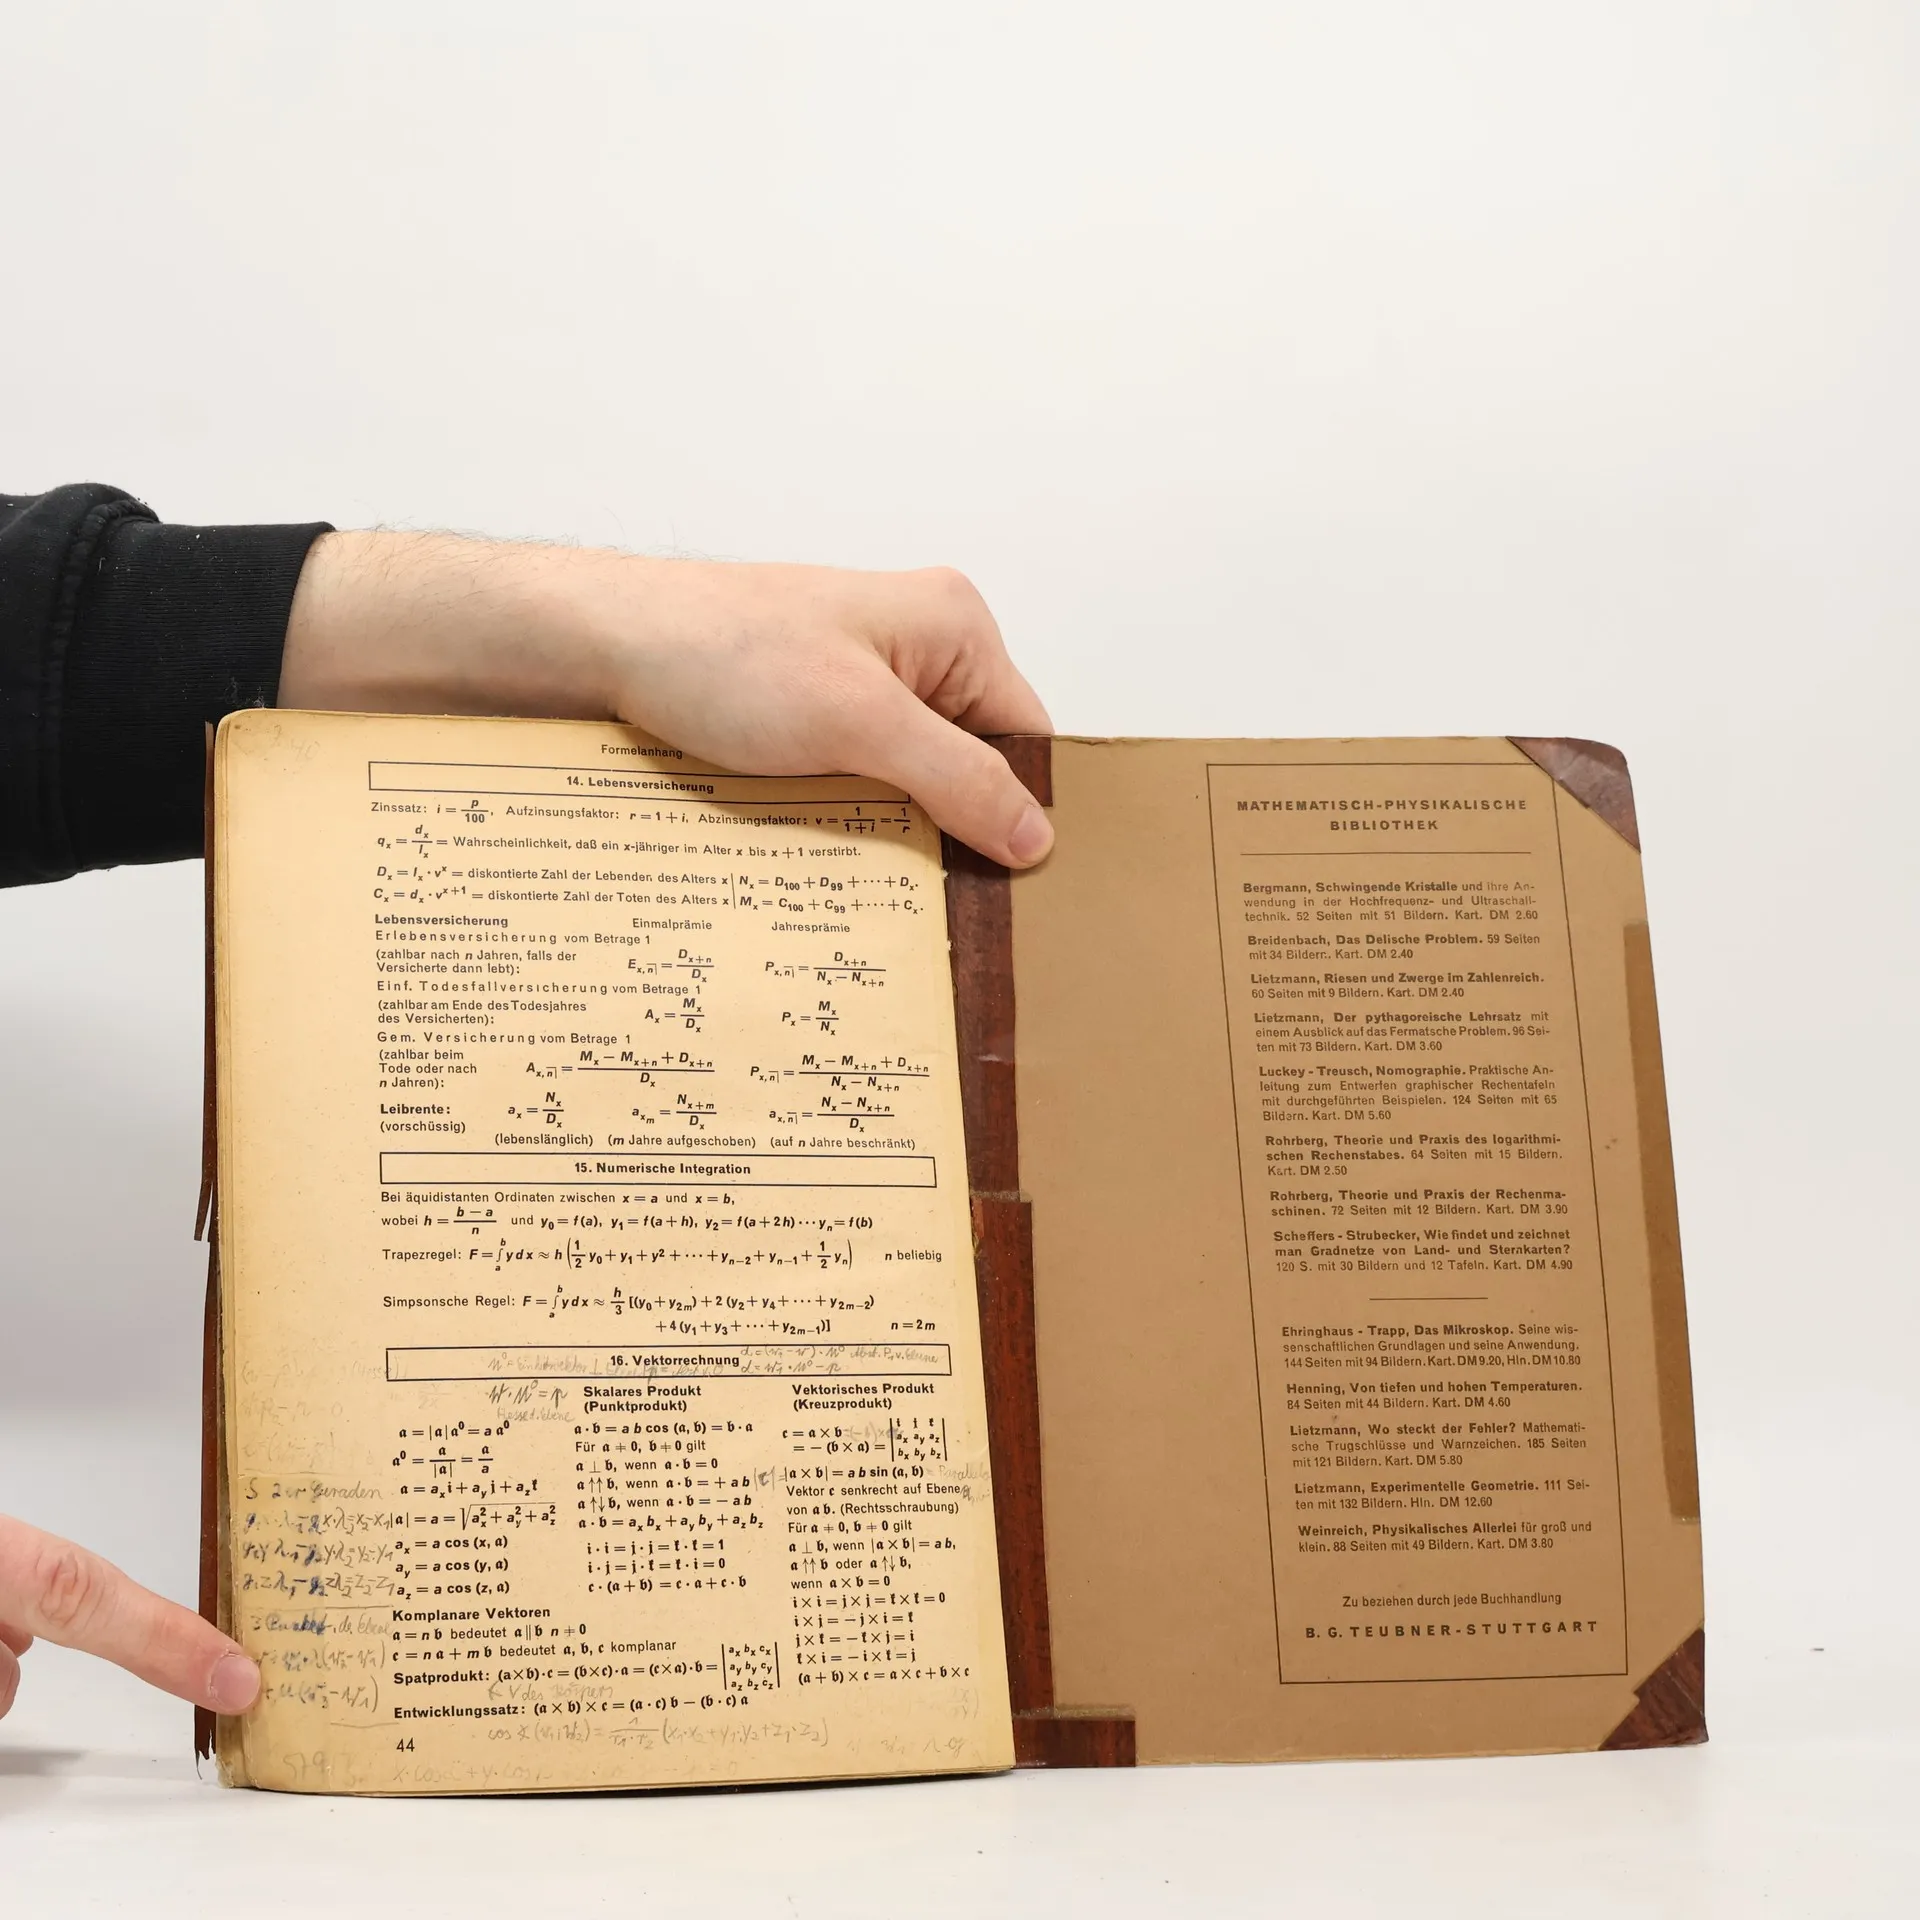 Formelanhang
14. Lebensversicherung
Zinssatz: i = p/100, Aufzinsungsfaktor: r = 1 + i, Abzinsungsfaktor: v = 1/(1 + i) = 1/r
qₓ = dₓ/lₓ = Wahrscheinlichkeit, daß ein x-jähriger im Alter x bis x + 1 verstirbt.
Dₓ = lₓ · vˣ = diskontierte Zahl der Lebenden des Alters x | Nₓ = D₁₀₀ + D₉₉ + ··· + Dₓ.
Cₓ = dₓ · vˣ⁺¹ = diskontierte Zahl der Toten des Alters x | Mₓ = C₁₀₀ + C₉₉ + ··· + Cₓ.
Lebensversicherung Einmalprämie Jahresprämie
Erlebensversicherung vom Betrage 1
(zahlbar nach n Jahren, falls der
Versicherte dann lebt): E_{x,n̅|} = D_{x+n}/D_x P_{x,n̅|} = D_{x+n}/(N_x − N_{x+n})
Einf. Todesfallversicherung vom Betrage 1
(zahlbar am Ende des Todesjahres
des Versicherten): A_x = M_x/D_x P_x = M_x/N_x
Gem. Versicherung vom Betrage 1
(zahlbar beim
Tode oder nach A_{x,n̅|} = (M_x − M_{x+n} + D_{x+n})/D_x P_{x,n̅|} = (M_x − M_{x+n} + D_{x+n})/(N_x − N_{x+n})
n Jahren):
Leibrente: a_x = N_x/D_x a_{x_m} = N_{x+m}/D_x a_{x,n̅|} = (N_x − N_{x+n})/D_x
(vorschüssig)
(lebenslänglich) (m Jahre aufgeschoben) (auf n Jahre beschränkt)
15. Numerische Integration
Bei äquidistanten Ordinaten zwischen x = a und x = b,
wobei h = (b − a)/n und y₀ = f(a), y₁ = f(a + h), y₂ = f(a + 2h) ··· yₙ = f(b)
Trapezregel: F = ∫ₐᵇ y dx ≈ h (1/2 y₀ + y₁ + y² + ··· + y_{n−2} + y_{n−1} + 1/2 yₙ) n beliebig
Simpsonsche Regel: F = ∫ₐᵇ y dx ≈ h/3 [(y₀ + y_{2m}) + 2 (y₂ + y₄ + ··· + y_{2m−2})
+ 4 (y₁ + y₃ + ··· + y_{2m−1})] n = 2m
16. Vektorrechnung
Skalares Produkt
(Punktprodukt)
Vektorisches Produkt
(Kreuzprodukt)
𝔞 = |𝔞| 𝔞⁰ = a 𝔞⁰
𝔞⁰ = 𝔞/|𝔞| = 𝔞/a
𝔞 = aₓ𝔦 + a_y𝔧 + a_z𝔨
|𝔞| = a = √(aₓ² + a_y² + a_z²)
aₓ = a cos (x, 𝔞)
a_y = a cos (y, 𝔞)
a_z = a cos (z, 𝔞)
𝔞 · 𝔟 = a b cos (𝔞, 𝔟) = 𝔟 · 𝔞
Für 𝔞 ≠ 0, 𝔟 ≠ 0 gilt
𝔞 ⊥ 𝔟, wenn 𝔞 · 𝔟 = 0
𝔞 ↑↑ 𝔟, wenn 𝔞 · 𝔟 = + ab
𝔞 ↑↓ 𝔟, wenn 𝔞 · 𝔟 = − ab
𝔞 · 𝔟 = aₓ bₓ + a_y b_y + a_z b_z
𝔦 · 𝔦 = 𝔧 · 𝔧 = 𝔨 · 𝔨 = 1
𝔦 · 𝔧 = 𝔧 · 𝔨 = 𝔨 · 𝔦 = 0
𝔠 · (𝔞 + 𝔟) = 𝔠 · 𝔞 + 𝔠 · 𝔟
𝔠 = 𝔞 × 𝔟
= − (𝔟 × 𝔞) = | 𝔦 𝔧 𝔨 ; aₓ a_y a_z ; bₓ b_y b_z |
|𝔞 × 𝔟| = a b sin (𝔞, 𝔟)
Vektor 𝔠 senkrecht auf Ebene
von 𝔞𝔟. (Rechtsschraubung)
Für 𝔞 ≠ 0, 𝔟 ≠ 0 gilt
𝔞 ⊥ 𝔟, wenn |𝔞 × 𝔟| = ab,
𝔞 ↑↑ 𝔟 oder 𝔞 ↑↓ 𝔟,
wenn 𝔞 × 𝔟 = 0
𝔦 × 𝔦 = 𝔧 × 𝔧 = 𝔨 × 𝔨 = 0
𝔦 × 𝔧 = − 𝔧 × 𝔦 = 𝔨
𝔧 × 𝔨 = − 𝔨 × 𝔧 = 𝔦
𝔨 × 𝔦 = − 𝔦 × 𝔨 = 𝔧
(𝔞 + 𝔟) × 𝔠 = 𝔞 × 𝔠 + 𝔟 × 𝔠
Komplanare Vektoren
𝔞 = n 𝔟 bedeutet 𝔞 ∥ 𝔟 n ≠ 0
𝔠 = n 𝔞 + m 𝔟 bedeutet 𝔞, 𝔟, 𝔠 komplanar
Spatprodukt: (𝔞 × 𝔟) · 𝔠 = (𝔟 × 𝔠) · 𝔞 = (𝔠 × 𝔞) · 𝔟 = | aₓ bₓ cₓ ; a_y b_y c_y ; a_z b_z c_z |
V des Körpers
Entwicklungssatz: (𝔞 × 𝔟) × 𝔠 = (𝔞 · 𝔠) 𝔟 − (𝔟 · 𝔠) 𝔞
44
S 2er Geraden
MATHEMATISCH-PHYSIKALISCHE
BIBLIOTHEK
Bergmann, Schwingende Kristalle und ihre An-
wendung in der Hochfrequenz- und Ultraschall-
technik. 52 Seiten mit 51 Bildern. Kart. DM 2.60
Breidenbach, Das Delische Problem. 59 Seiten
mit 34 Bildern. Kart. DM 2.40
Lietzmann, Riesen und Zwerge im Zahlenreich.
60 Seiten mit 9 Bildern. Kart. DM 2.40
Lietzmann, Der pythagoreische Lehrsatz mit
einem Ausblick auf das Fermatsche Problem. 96 Sei-
ten mit 73 Bildern. Kart. DM 3.60
Luckey - Treusch, Nomographie. Praktische An-
leitung zum Entwerfen graphischer Rechentafeln
mit durchgeführten Beispielen. 124 Seiten mit 65
Bildern. Kart. DM 5.60
Rohrberg, Theorie und Praxis des logarithmi-
schen Rechenstabes. 64 Seiten mit 15 Bildern.
Kart. DM 2.50
Rohrberg, Theorie und Praxis der Rechenma-
schinen. 72 Seiten mit 12 Bildern. Kart. DM 3.90
Scheffers - Strubecker, Wie findet und zeichnet
man Gradnetze von Land- und Sternkarten?
120 S. mit 30 Bildern und 12 Tafeln. Kart. DM 4.90
Ehringhaus - Trapp, Das Mikroskop. Seine wis-
senschaftlichen Grundlagen und seine Anwendung.
144 Seiten mit 94 Bildern. Kart. DM 9.20, Hln. DM 10.80
Henning, Von tiefen und hohen Temperaturen.
84 Seiten mit 44 Bildern. Kart. DM 4.60
Lietzmann, Wo steckt der Fehler? Mathemati-
sche Trugschlüsse und Warnzeichen. 185 Seiten
mit 121 Bildern. Kart. DM 5.80
Lietzmann, Experimentelle Geometrie. 111 Sei-
ten mit 132 Bildern. Hln. DM 12.60
Weinreich, Physikalisches Allerlei für groß und
klein. 88 Seiten mit 49 Bildern. Kart. DM 3.80
Zu beziehen durch jede Buchhandlung
B. G. TEUBNER - STUTTGART